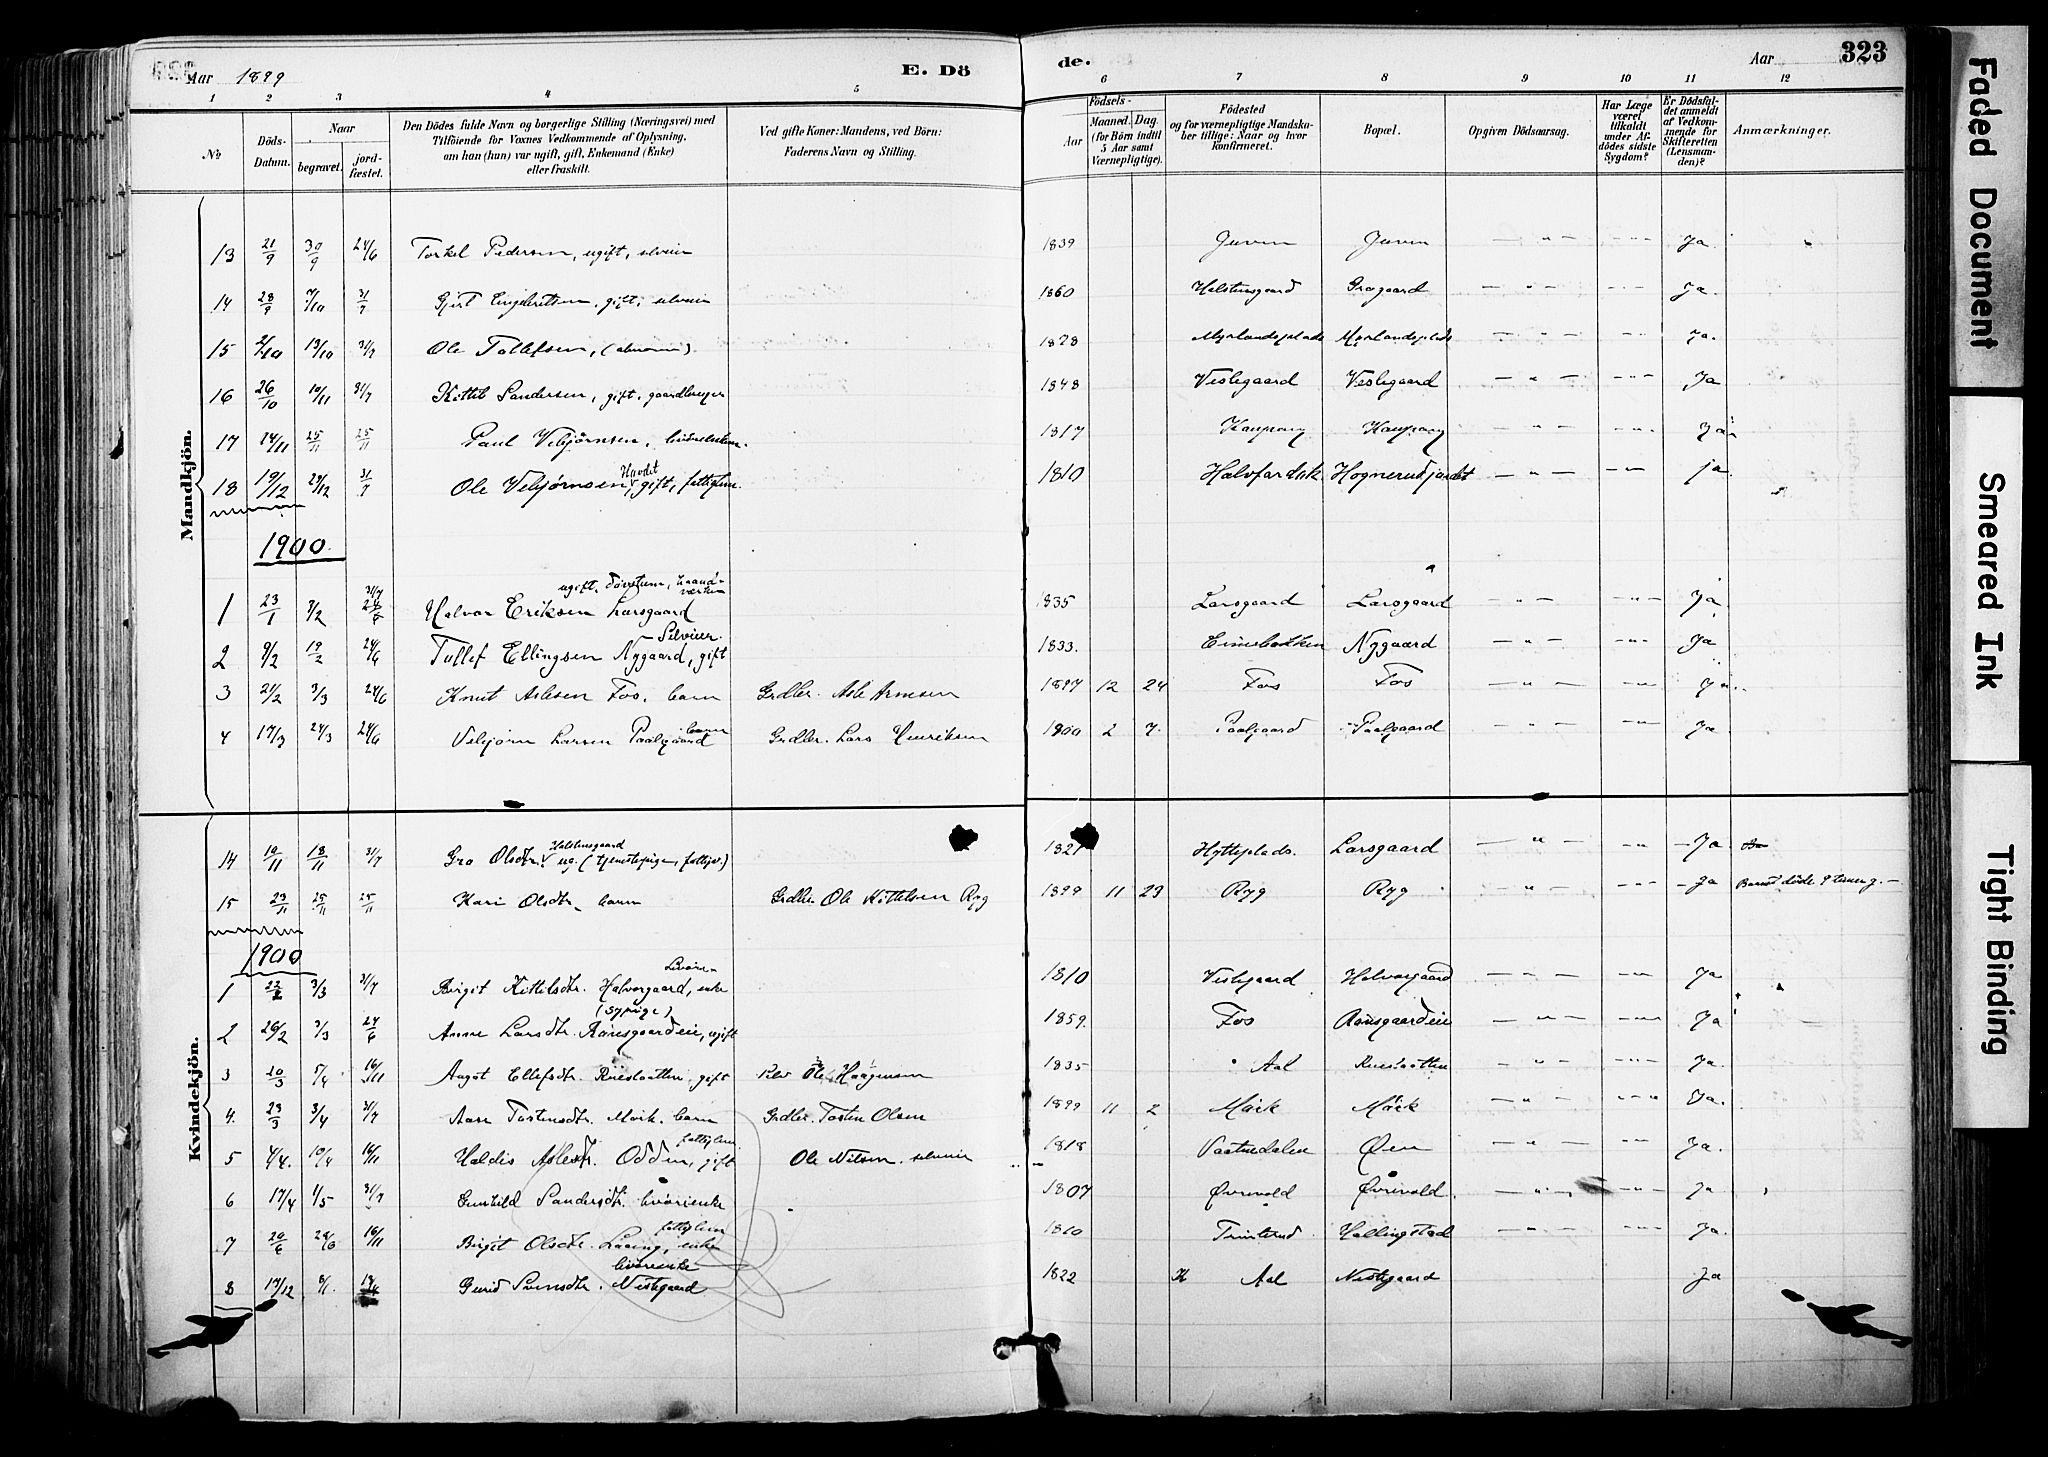 Aar 1899 E. Dö
de. Aar 323
1 2 3 4 5 6 7 8 9 10 11 12
No
Döds-Datum.
Naar
begravet.
jord-fæstet.
Den Dödes fulde Navn og borgerlige Stilling (Næringsvei) med
Tilföiende for Voxnes Vedkommende af Oplysning.
om han (hun) var ugift, gift, Enkemand (Enke)
eller fraskilt.
Ved gifte Koner: Mandens, ved Börn:
Faderens Navn og Stilling.
Födsels-
Aar
Maaned. Dag.
(for Börn indtil
5 Aar samt
Værnepligtige).
Födested
og for værnepligtige Mandska-
ber tillige: Naar og hvor
konfirmeret.
Bopæl.
Opgiven Dödsaarsag.
Har Læge
været
tilkaldt
under Af-
dödes sidste
Sygdom?
Er Dödsfal-
det anmeldt
af Vedkom-
mende for
Skifteretten
(Lensman-
den)?
Anmærkninger.
Mandkjön.
13 21/9 30/9 24/6 Torkel Pedersen, ugift, selveier 1839 Juven Juven — " — - " - Ja.
14 28/9 7/10 31/7 Gjert Engebretsen, gift, selveier 1860 Halstensgaard Grøgaard — " — - " - Ja.
15 2/10 13/10 31/7 Ole Tollefsen, 1828 Myrlandsplads Myrlandsplads — " — - " - Ja.
16 26/10 10/11 31/7 Kittil Sandersen, gift, gaardbruger 1848 Veslegaard Veslegaard — " — - " - Ja
17 14/11 25/11 25/11 Paul Vebjørnsen, 1817 Kaupang Kaupang — " — - " - Ja
18 19/12 29/12 31/7 Ole Vebjørnsen Hovdet, gift, fattiglem. 1810 Halvfardsk. Hognerudjordet — " — - " - ja.
1900.
ugift, Døvstum, haand-
værker
31/7
1 23/1 3/2 24/6 Halvor Eriksen Larsgaard 1835 Larsgaard Larsgaard — " — - " - Ja
Selveier.
2 9/2 19/2 24/6 Tollef Ellingsen Nygaard, gift 1833. Nygaard — " — - " - Ja
3 21/2 3/3 24/6 Knut Aslesen Fos. barn Grdbr. Asle Arnesen 1897 12 24 Fos Fos — " — - " - Ja.
4 17/3 24/3 24/6 Vebjørn Larsen Paalgaard barn Grdbr. Lars Henriksen 1900 2 7. Paalgaard Paalgaard — " — - " - Ja
Kvindekjön.
14 10/11 18/11 31/7 Gro Olsdtr. Halstensgaard ug. (tjenestepige, fattigv.) 1821 Hytteplads. Larsgaard — " — - " - Ja
15 23/11 25/11 25/11 Kari Olsdtr. barn Grdbr. Ole Kittelsen Ryg 1899 11 23 Ryg Ryg — " — - " - Ja Barnet døde 9 timer g.—
1900
1 22/2 3/3 31/7 Birgit Kittilsdtr. Halvorgaard, enke 1810 Veslegaard Halvorgaard — " — - " - Ja
(sypige)
2 26/2 3/3 24/6 Anne Larsdtr. Roinsgaardeie, ugift 1859. Fos Roinsgaardeie — " — - " - Ja
3 20/3 5/4 16/11 Aagot Ellefsdtr. Rueslaatten, gift Selv Ole Haagensen 1835 Aal Rueslaatten — " — - " - Ja.
4. 23/3 3/4 31/7 Aase Torstensdtr. Moik. barn Grdbr. Tosten Olsen 1899 11 2 Moik Moik — " — - " - Ja.
fattiglem
5 4/4. 10/4 16/11 Haldis Aslesdtr. Odden, gift Ole Nilsen. selveier 1818 Vaatnedalen Øen — " — - " - Ja.
6 17/4 1/5 31/7 Gunhild Sandersdtr. kvörienke 1807 Øvrevold Øvrevold. — " — - " - Ja
fattiglem
7 20/6 28/6 16/11 Birgit Olsdtr. enke 1810 Trinterud Hallingstad — " — - " - Ja.
kvörienke
8 17/12 8/1. Gurid Svensdtr. Nestegaard 1822 H Aal Nestegaard Ja
Faded Document
Smeared Ink
Tight Binding